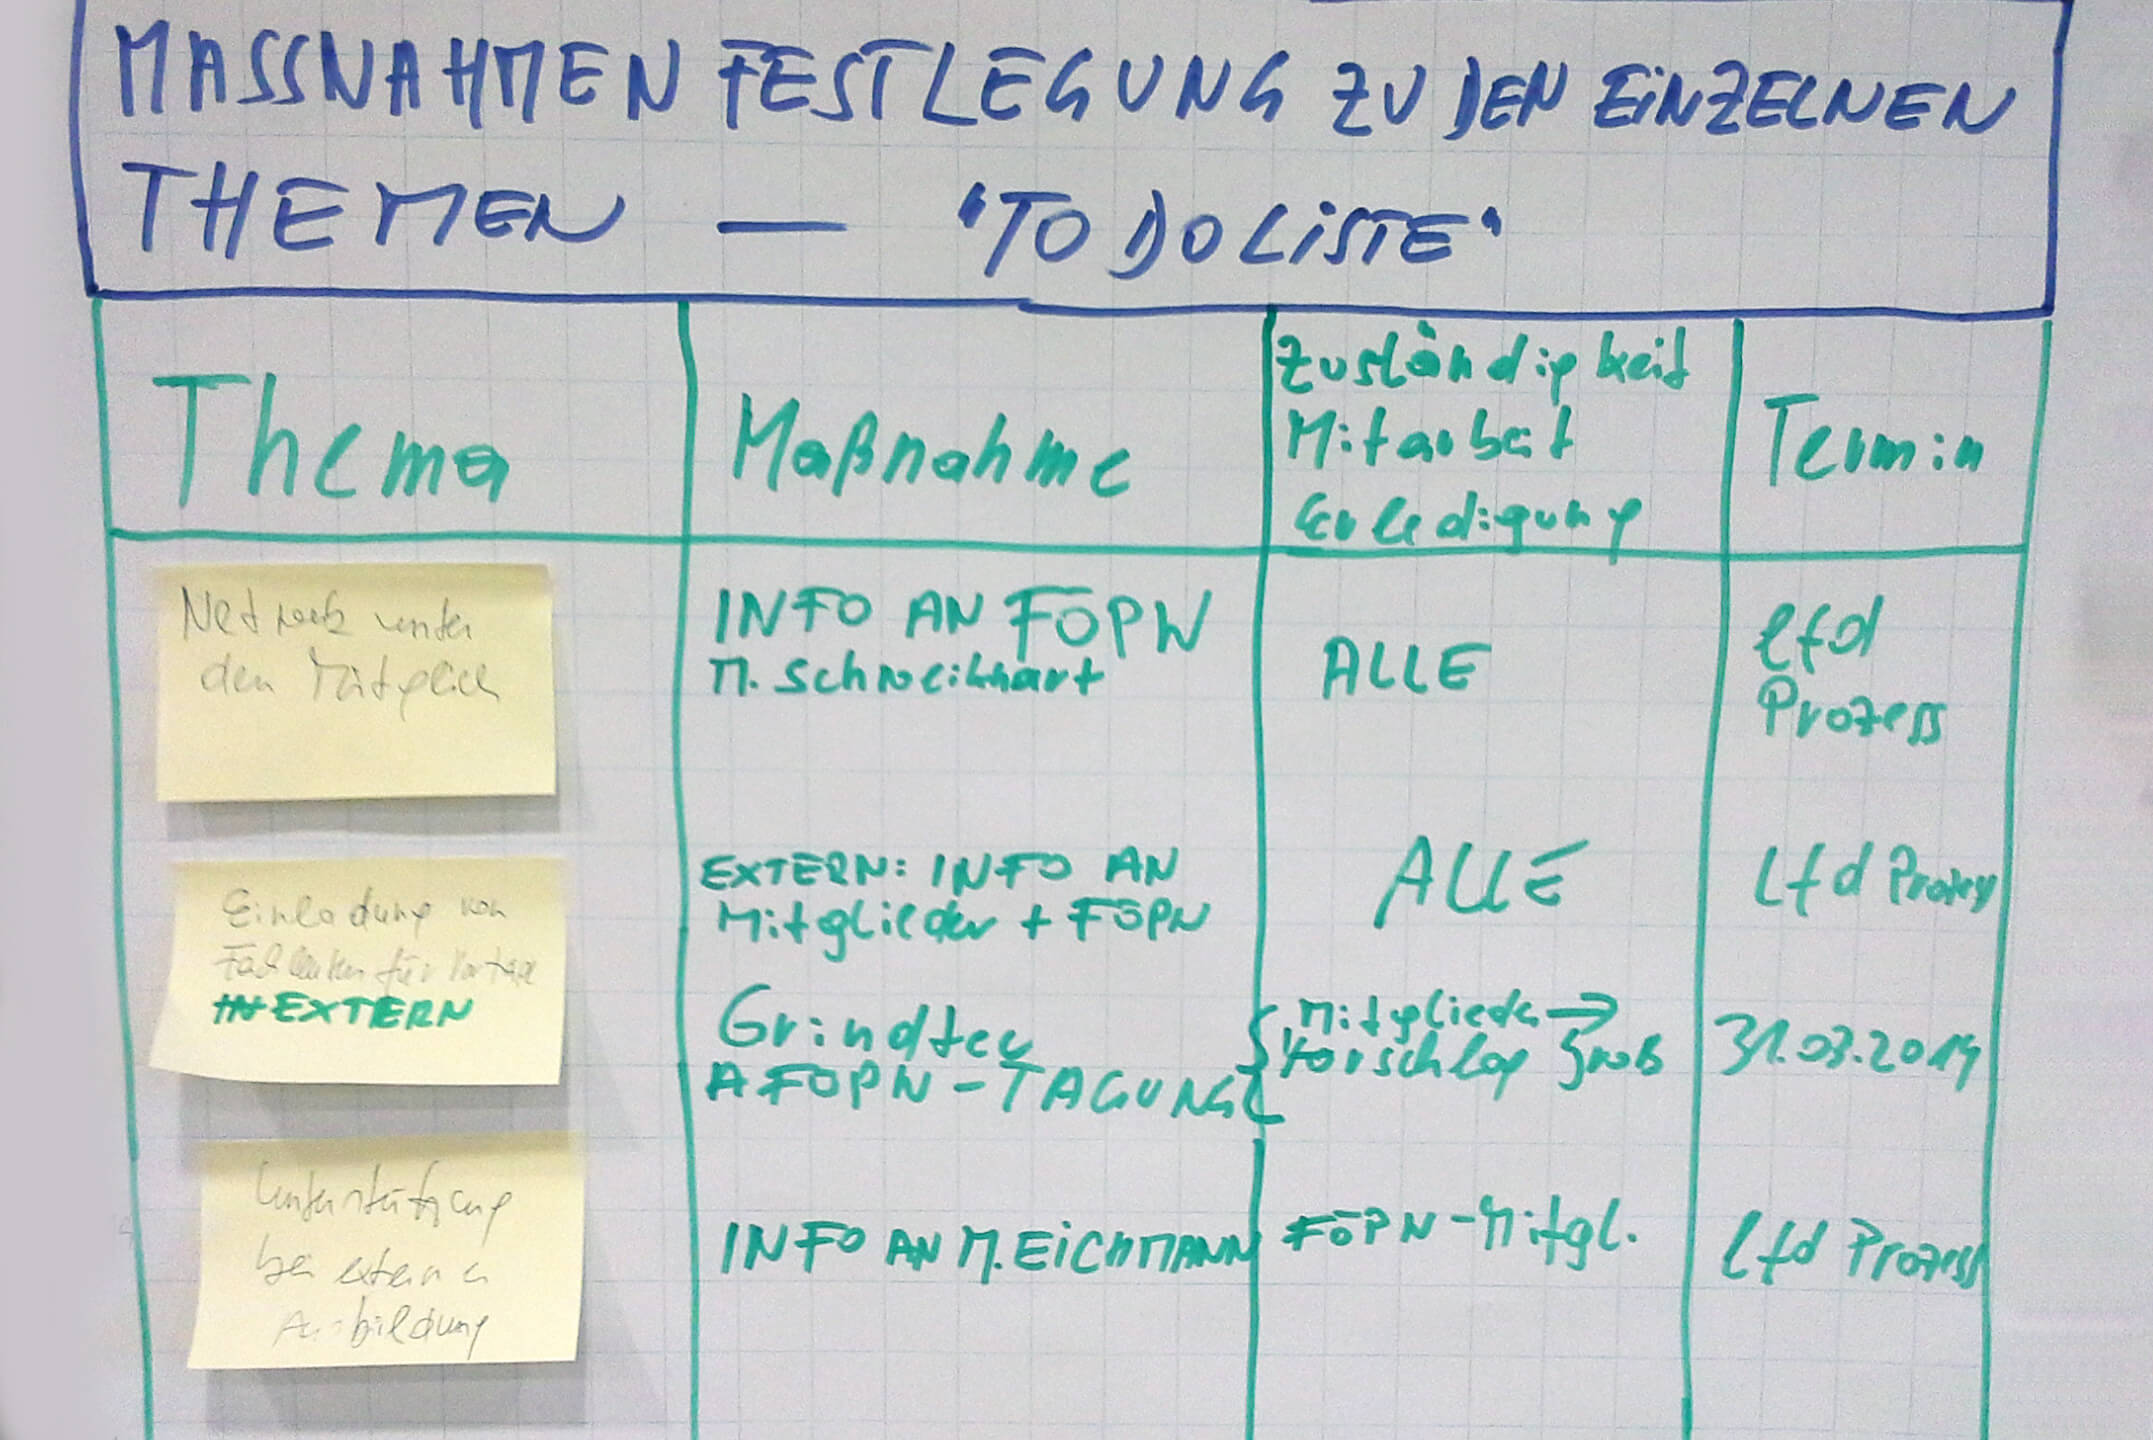 MASSNAHMEN FESTLEGUNG ZU DEN EINZELNEN
THEMEN — "TO DO LISTE"
Thema
Maßnahme
Zuständigkeit
Mitarbeit
Erledigung
Termin
Netzwerk unter
den Mitglied
INFO AN FÖPN
M. Schweikhart
ALLE
lfd
Prozess
Einladung von
Fachleuten für Vorträge
EXTERN
EXTERN: INFO AN
Mitglieder + FÖPN
ALLE
lfd Prozess
Grindtec
FÖPN - TAGUNG
Mitglieder →
Vorschlag Groß
31.03.2019
Unterstützung
bei externen
Ausbildung
INFO AN M. EICHMANN
FÖPN - Mitgl.
lfd Prozess